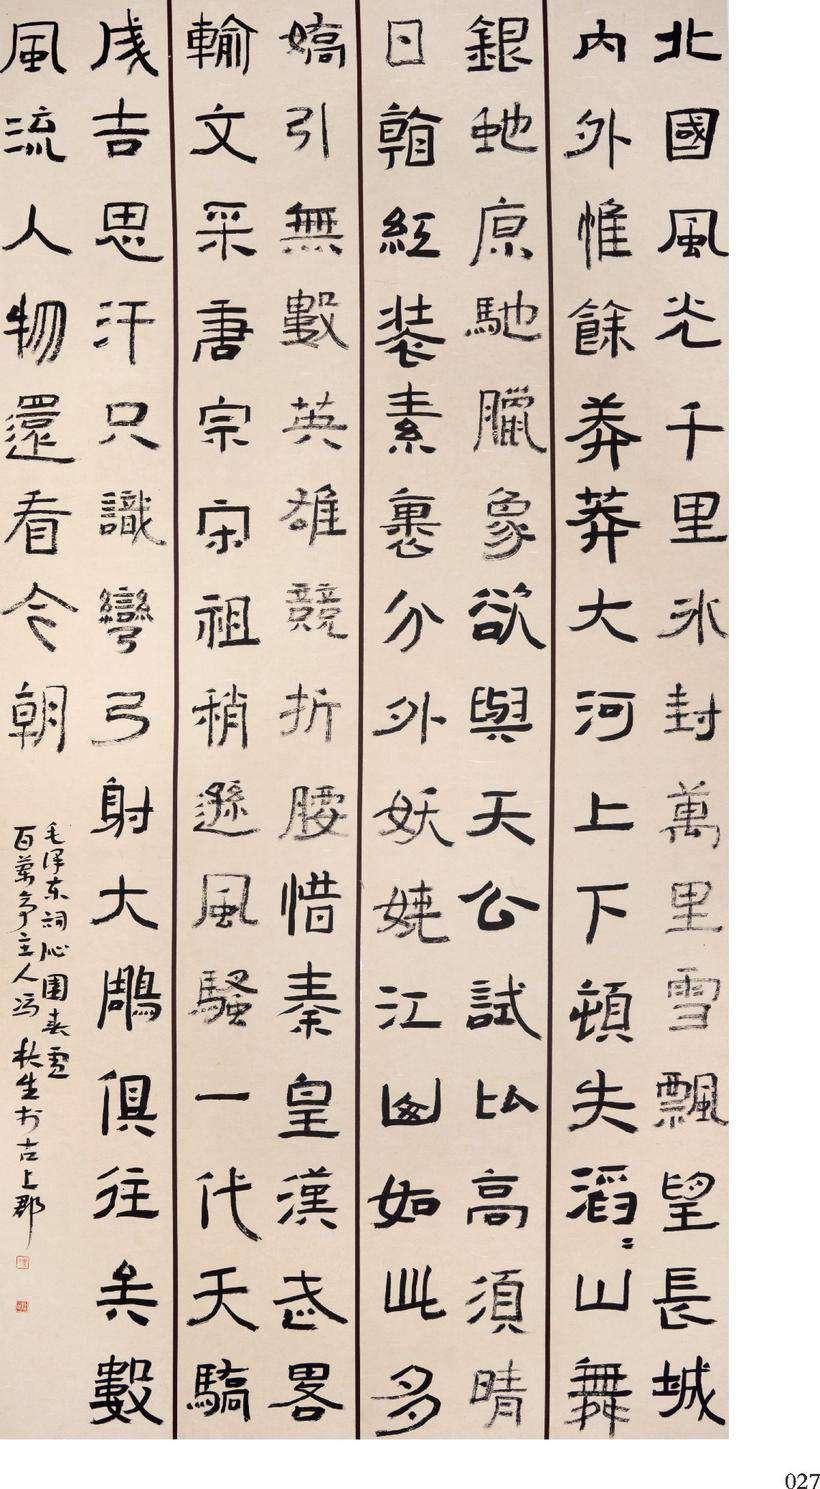 北國風光千里冰封萬里雪飄望長城
内外惟餘莽莽大河上下頓失滔〻山舞
銀虵原馳臘象欲與天公試比高須晴
日看紅装素裹分外妖嬈江山如此多
嬌引無數英雄競折腰惜秦皇漢武畧
輸文采唐宗宋祖稍遜風騷一代天驕
成吉思汗只識彎弓射大鵰俱往矣數
風流人物還看今朝
毛泽东词沁園春雪
百萬亭主人冯生於古上郡
027